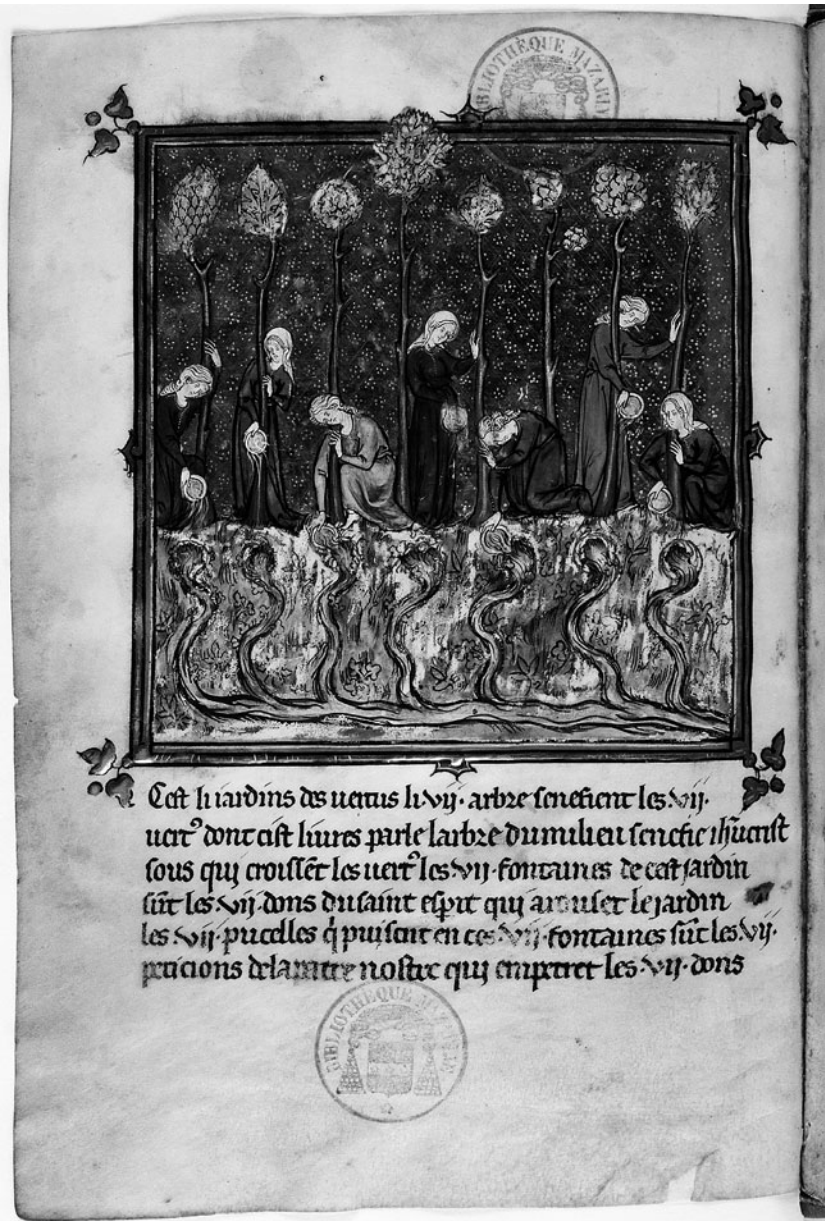 BIBLIOTHÈQUE MAZARIN
Cest li iardins des uertus li vij· arbre senefient les ·vij·
uert⁹ dont cist liures parle larbre du milieu senefie ihũcrist
sous qui croissẽt les uert⁹ les ·vij· fontaines de cest jardin
sũt les ·vij· dons du saint esprit qui arousẽt le jardin
les ·vij· pucelles q̃ puisent en ces ·vij· fontaines sũt les ·vij·
peticions de la patre nostre qui empetrẽt les ·vij· dons
BIBLIOTHÈQUE MAZARINE